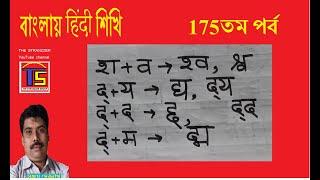 বাংলায় हिंदी শিখি
175তম পর্ব
THE STRANGER
YouTube channel
TS
श + व → श्व, श्व
द् + य → द्य, द्‌य
द् + द → द्द, द्‌द
द् + म → द्म